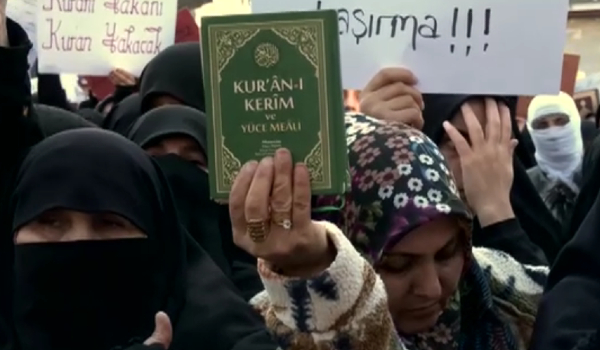 Kuranı Yakanı
Kuran Yakacak
aşırma!!!
KUR'ÂN-I
KERİM
ve
YÜCE MEÂLİ